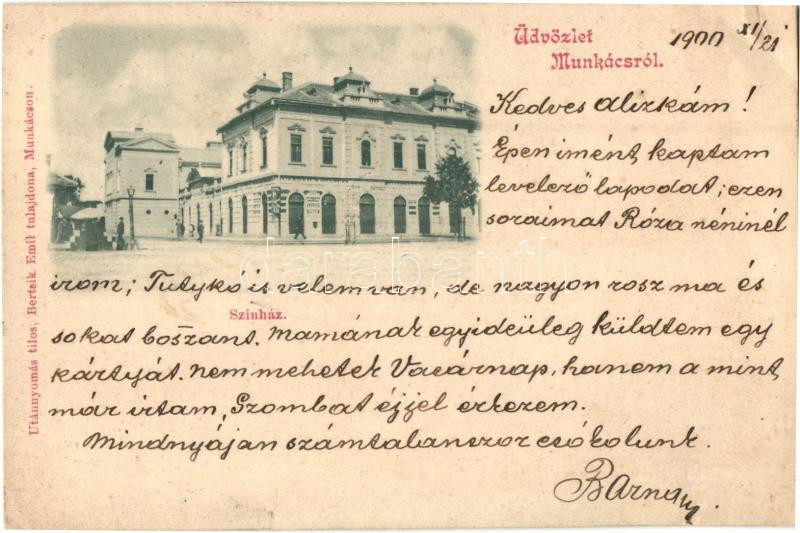 Üdvözlet
Munkácsról.
1900 XI/21
Kedves Alizkám!
Épen imént kaptam
levelező lapodat; ezen
soraimat Róza néninél
irom; Tutykó is velem van, de nagyon rosz ma és
Szinház.
sokat boszant. Mamának egyideüleg küldtem egy
kártyát. Nem mehetek Vasárnap, hanem a mint
már irtam, Szombat éjjel érkezem.
Mindnyájan számtalanszor csókolunk.
Barna
Utánnyomás tilos, Bertsik Emil tulajdona, Munkácson.
darabanth